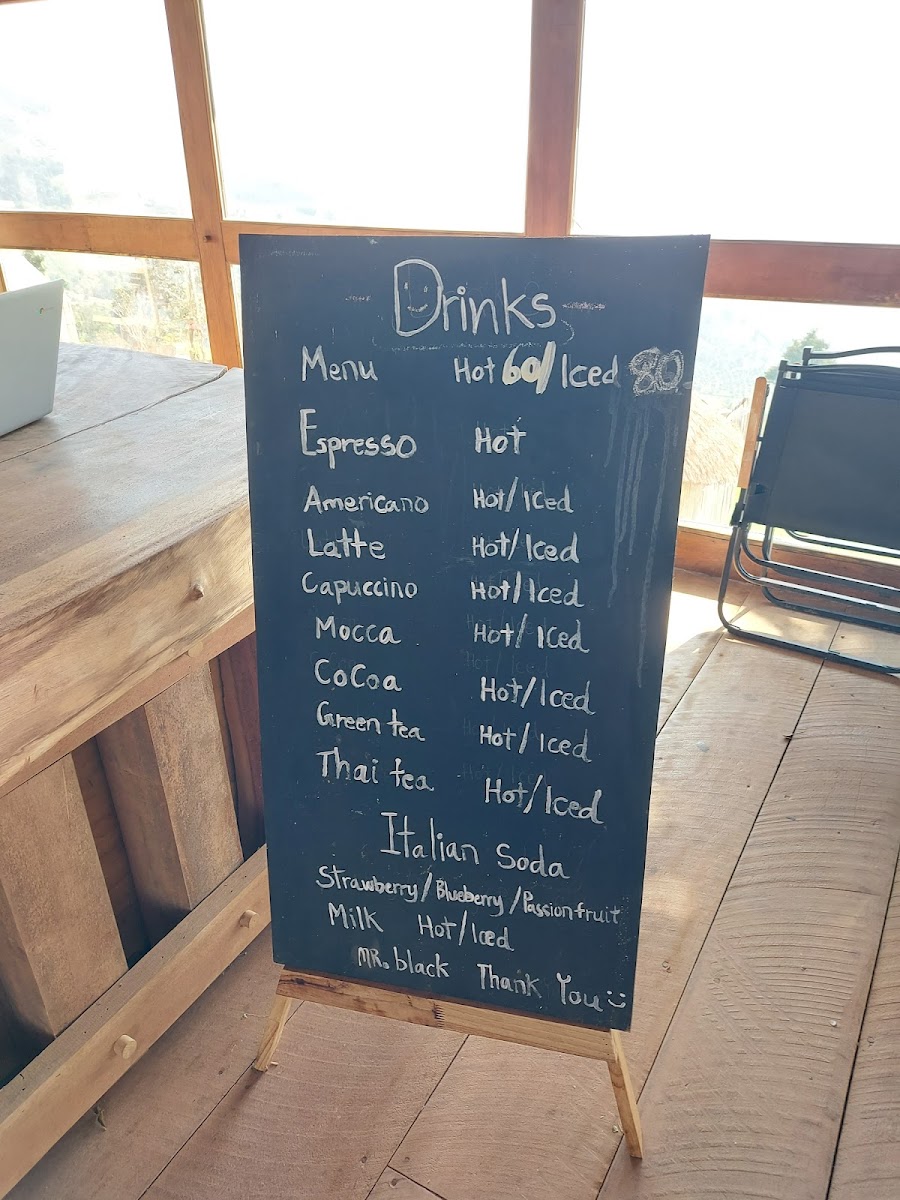 Drinks
Menu Hot 60/Iced 80
Espresso Hot
Americano Hot/Iced
Latte Hot/Iced
Capuccino Hot/Iced
Mocca Hot/Iced
CoCoa Hot/Iced
Green tea Hot/Iced
Thai tea Hot/Iced
Italian Soda
Strawberry/Blueberry/Passionfruit
Milk Hot/Iced
MR. black Thank You